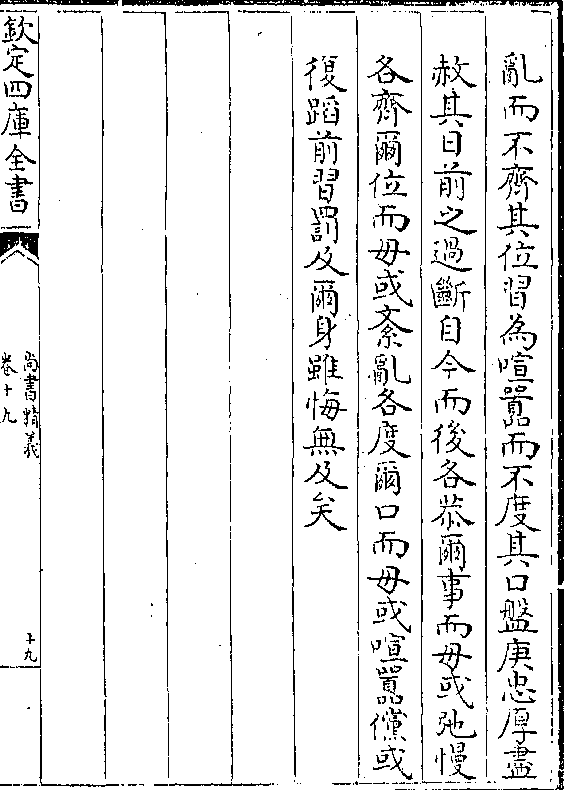 亂而不齊其位習為喧嚻而不度其口盤庚忠厚盡
赦其日前之過斷自今而後各恭爾事而毋或弛慢
各齊爾位而毋或紊亂各度爾口而毋或喧嚻儻或
復蹈前習罰及爾身雖悔無及矣
欽定四庫全書
尚書精義
卷十九
十九